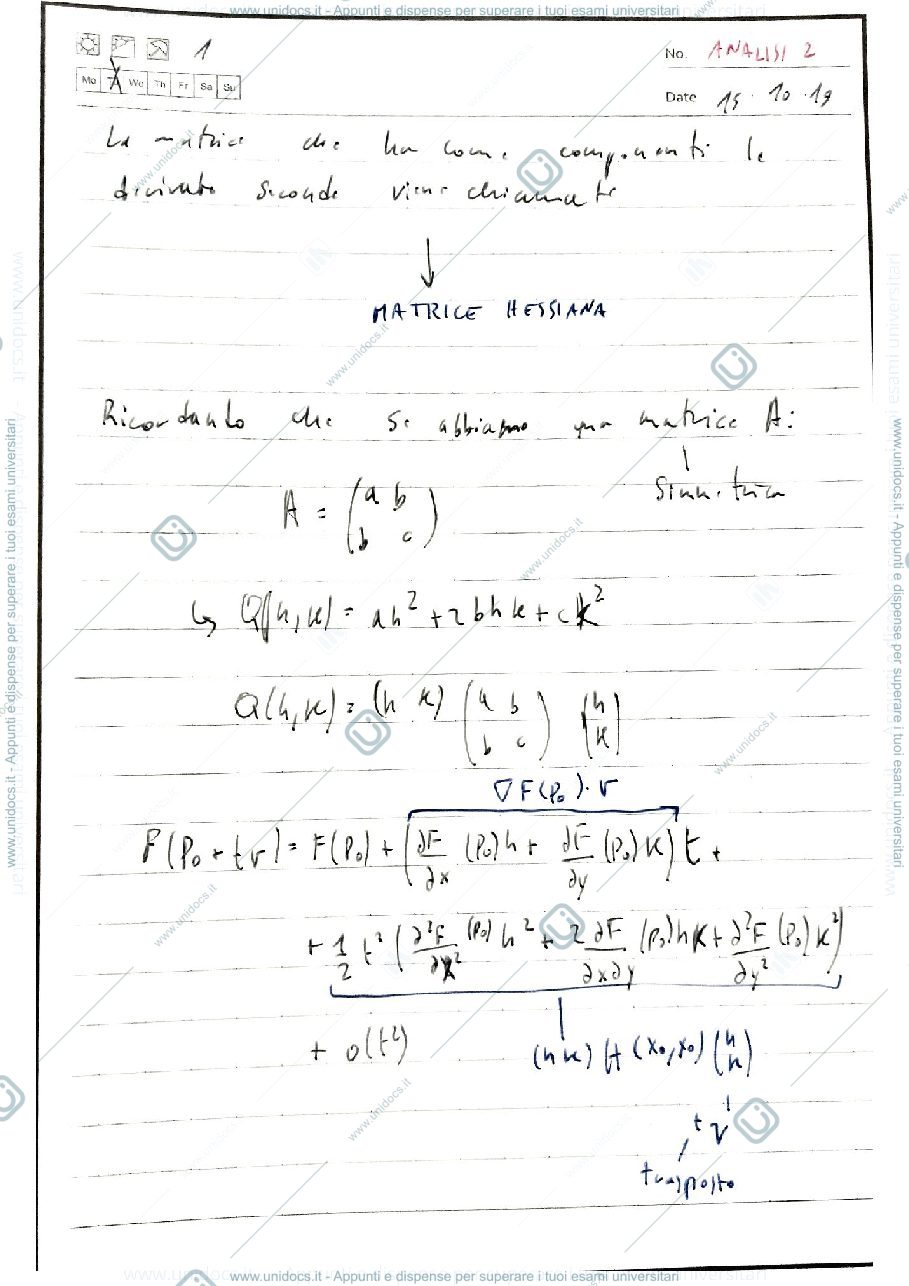 www.unidocs.it - Appunti e dispense per superare i tuoi esami universitari
1
No. ANALISI 2
Mo TA We Th Fr Sa Su
Date 15 . 10 . 19
La matrice che ha come componenti le
derivate seconde viene chiamata
↓
MATRICE HESSIANA
Ricordando che se abbiamo una matrice A:
simmetrica
A = (a b
b c)
↳ Q(h,k) = ah² + 2bhk + ck²
Q(h,k) = (h k) (a b
b c) (h
k)
∇F(P₀)·v
F(P₀ + tv) = F(P₀) + (∂F/∂x (P₀)h + ∂F/∂y (P₀)k) t +
+ 1/2 t² (∂²F/∂x² (P₀) h² + 2 ∂F/∂x∂y (P₀)hk + ∂²F/∂y² (P₀) k²)
+ o(t²)
(h k) H (x₀,y₀) (h
k)
t v
trasposto
www.unidocs.it - Appunti e dispense per superare i tuoi esami universitari